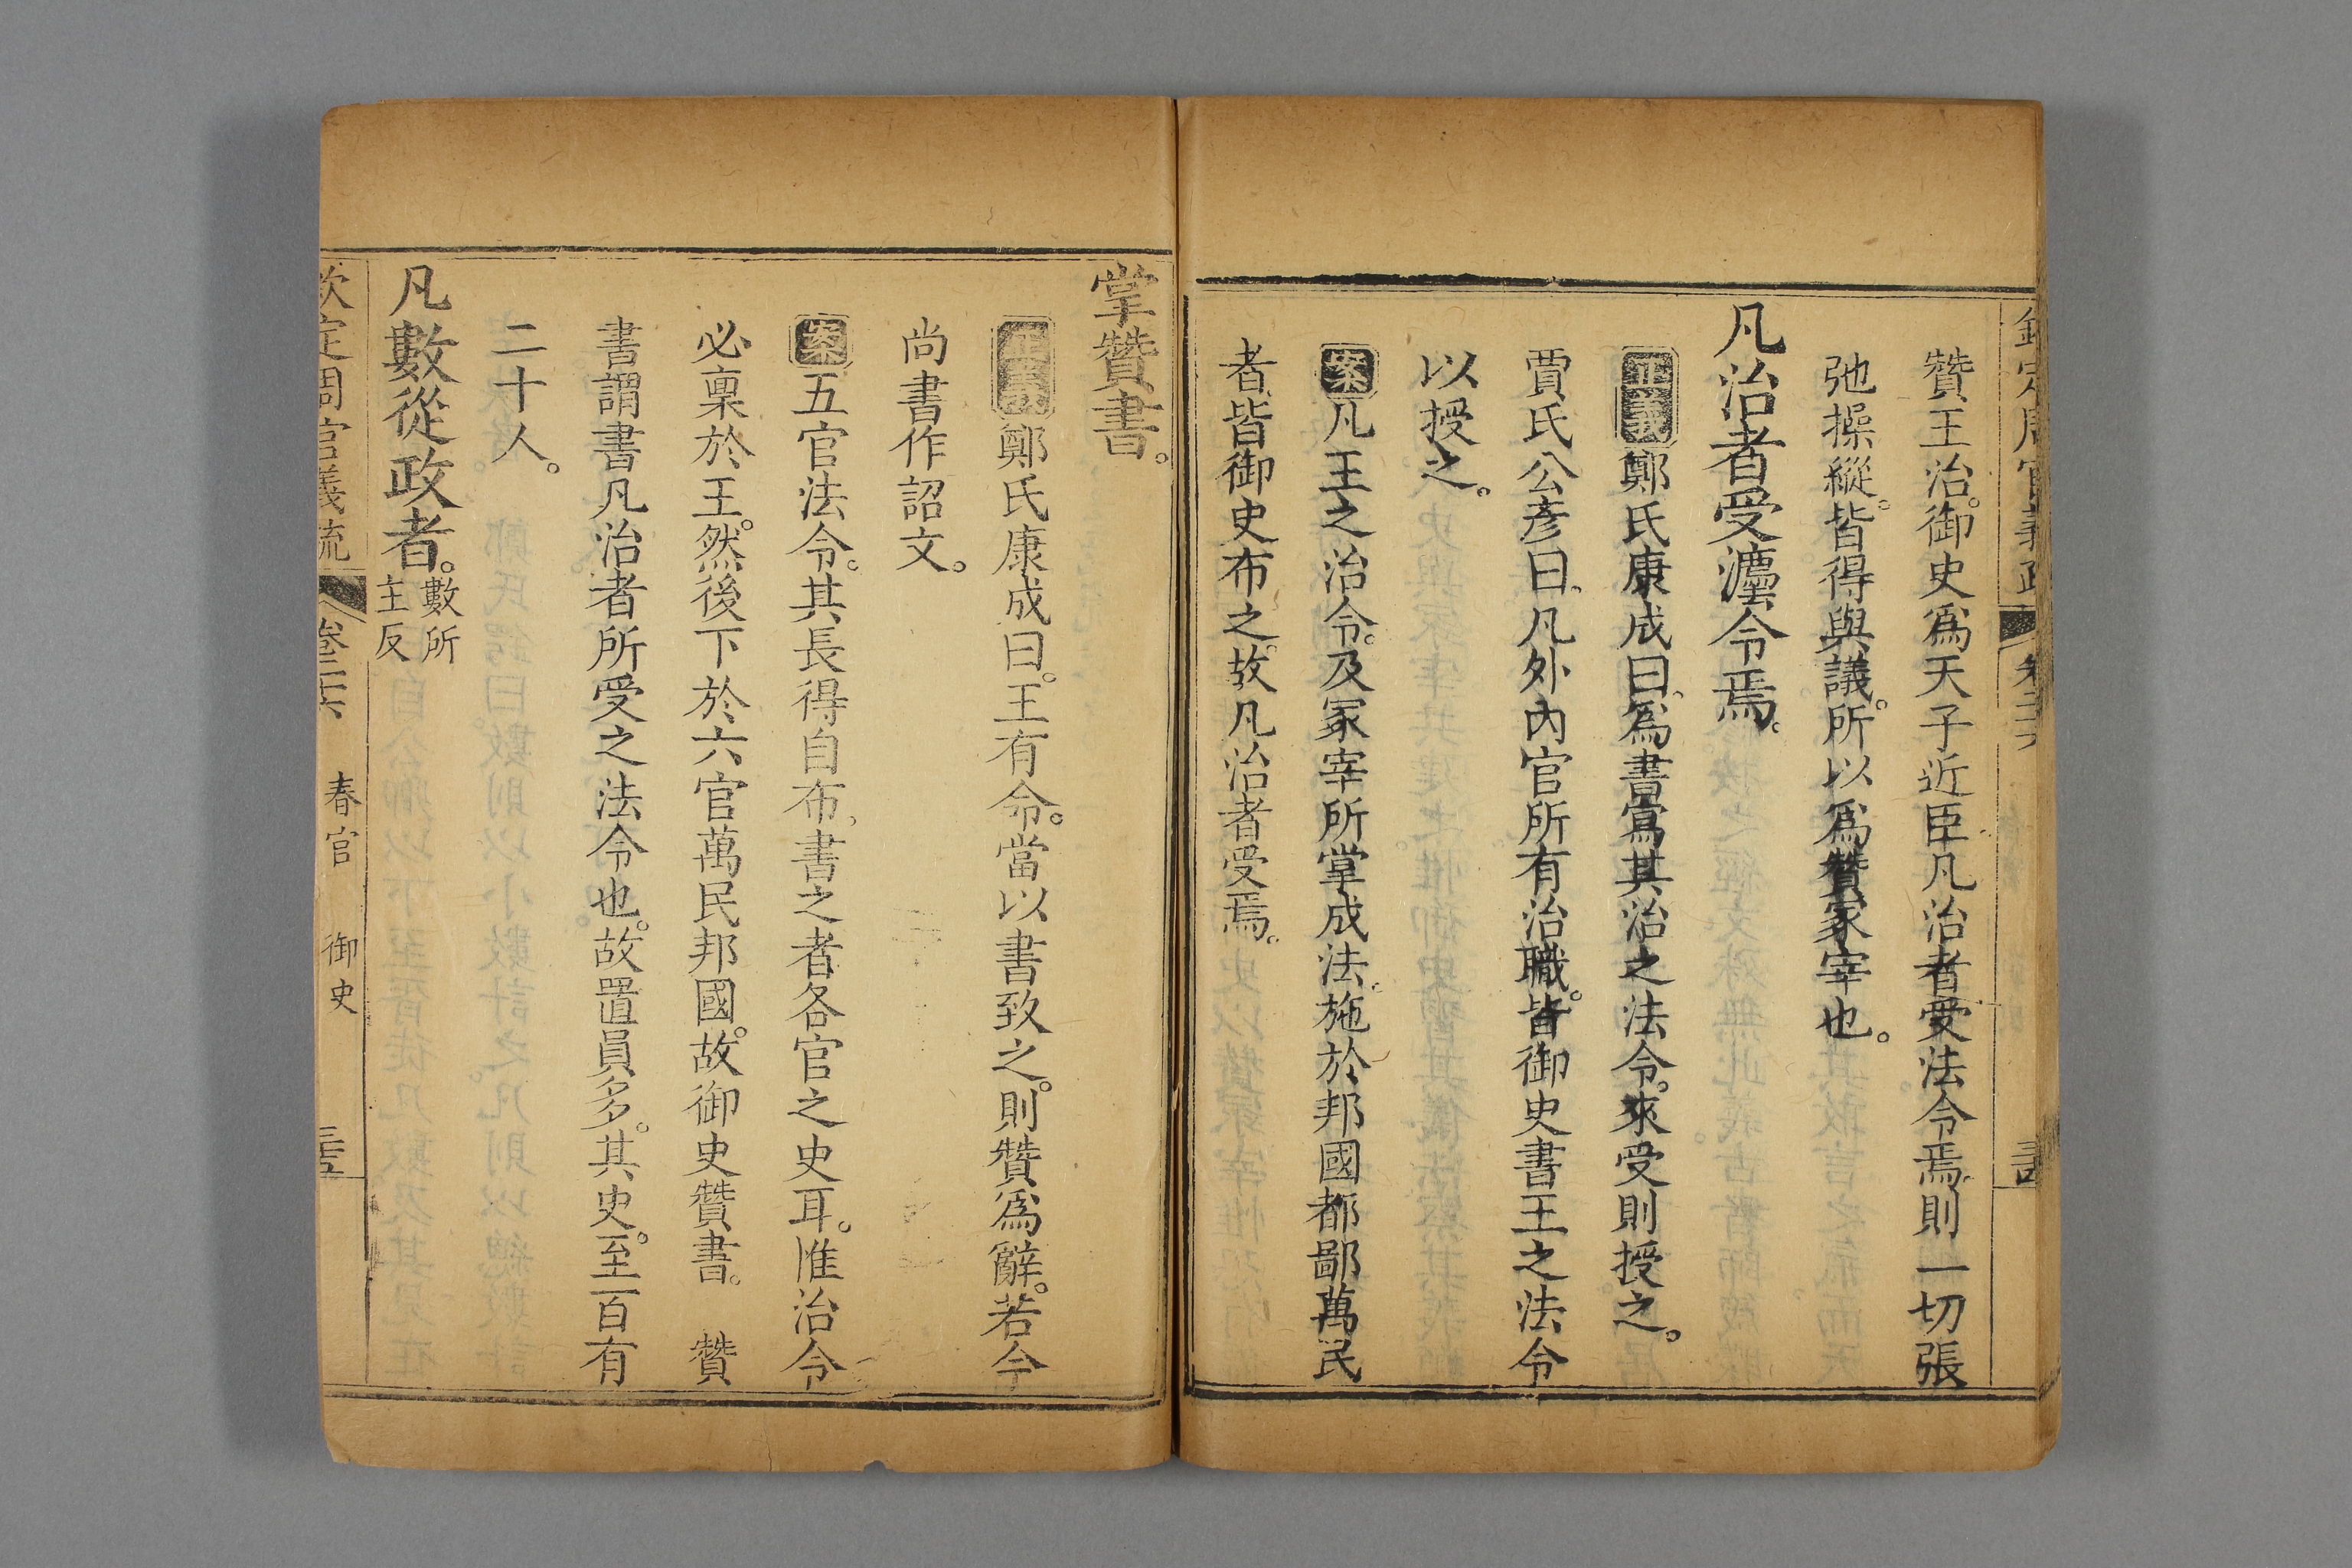 贊王治。御史爲天子近臣。凡治者受法令焉。則一切張
弛操縱。皆得與議。所以爲贊冢宰也。
凡治者受灋令焉。
正義鄭氏康成曰。爲書寫其治之法令。來受則授之。
賈氏公彥曰。凡外內官所有治職。皆御史書王之法令
以授之。
案凡王之治令。及冢宰所掌成法。施於邦國都鄙萬民
者。皆御史布之。故凡治者受焉。
掌贊書。
正義鄭氏康成曰。王有令。當以書致之。則贊爲辭。若今
尚書作詔文。
案五官法令。其長得自布。書之者各官之史耳。惟治令
必稟於王。然後下於六官萬民邦國。故御史贊書。 贊
書謂書凡治者所受之法令也。故置員多。其史。至百有
二十人。
凡數從政者。數所主反
欽定周官義疏 卷二十六 春官 御史 三五